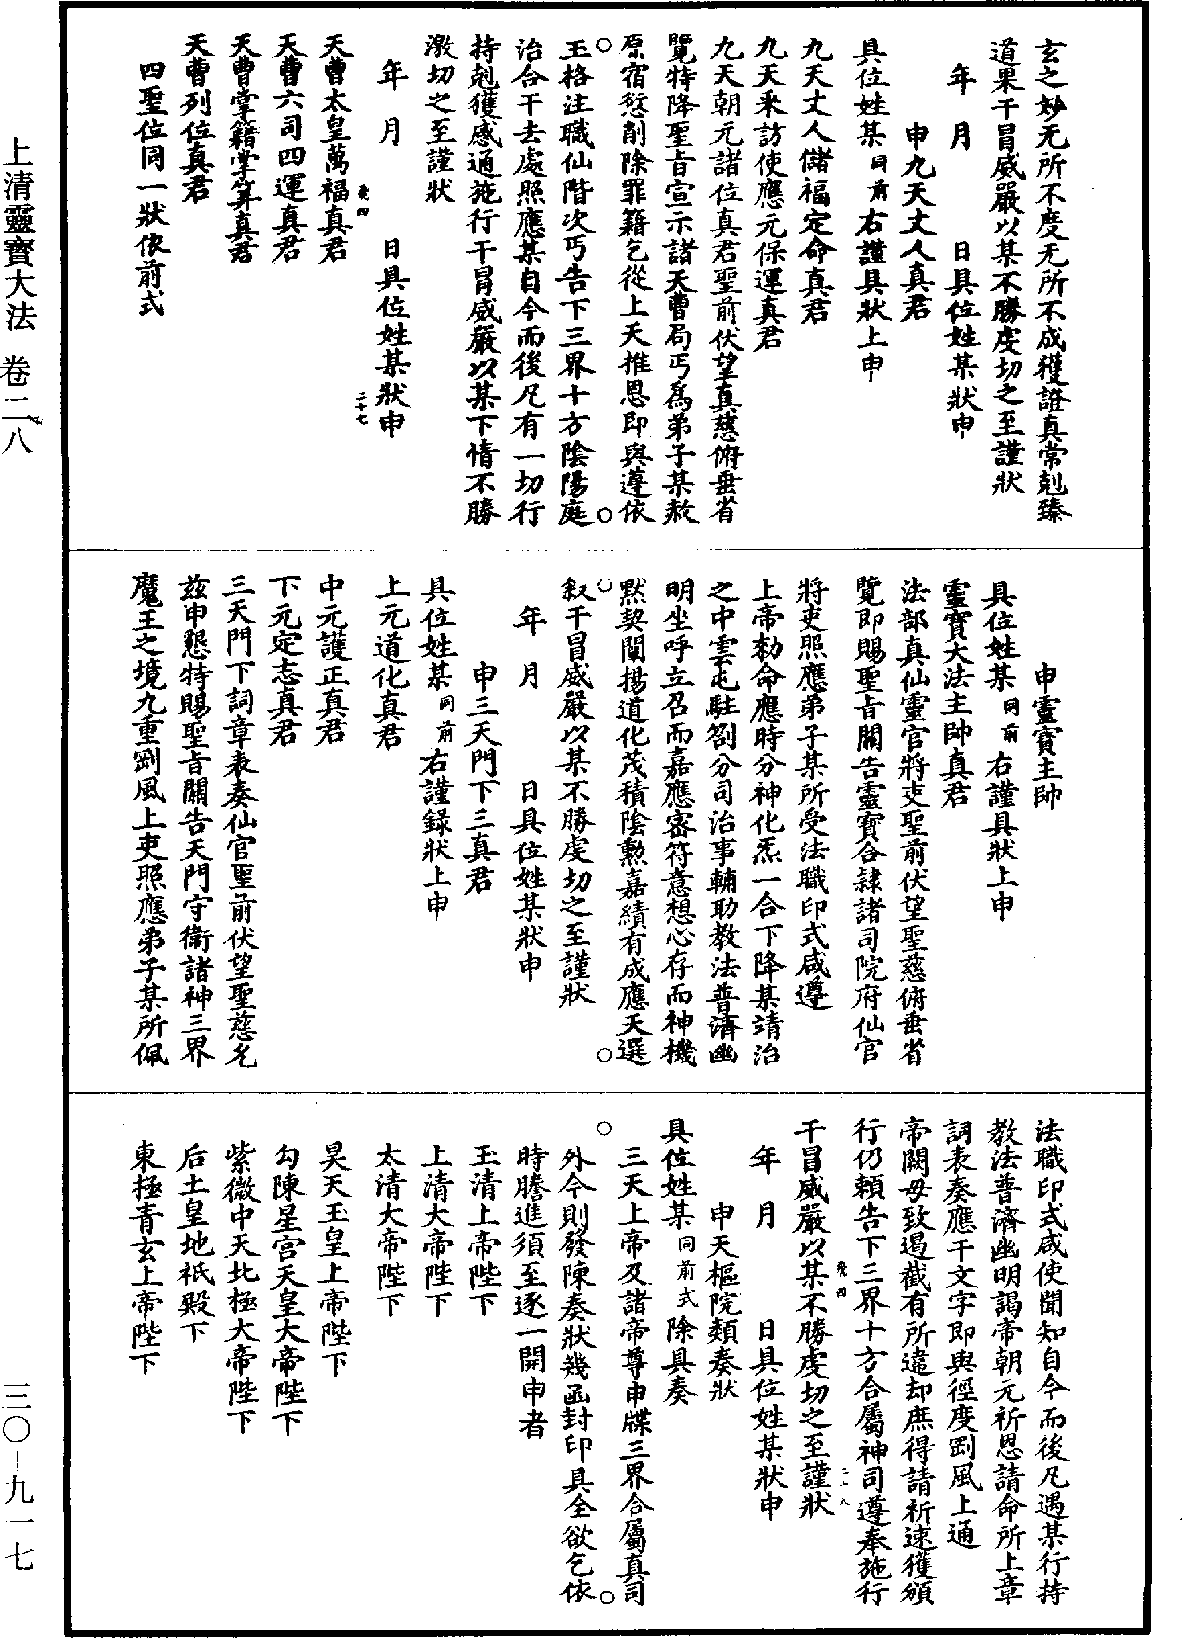 玄之妙无所不度无所不成穫證真常剋臻
道果干冒威嚴以某不勝虔切之至謹狀
年　月　　　日具位姓某狀申
申九天丈人真君
具位姓某同前右謹具狀上申
九天丈人儲福定命真君
九天采訪使應元保運真君
九天朝元諸位真君聖前伏望真慈俯垂省
覽特降聖旨宣示諸天曹局丐爲弟子某赦
原宿愆削除罪籍乞從上天推恩即與遵依
玉格注職仙階次丐告下三界十方陰陽庭
治合干去處照應某自今而後凡有一切行
持剋獲感通施行干冒威嚴以某下情不勝
激切之至謹狀
年　月　　　日具位姓某狀申
二十七
天曹太皇萬福真君
養四
天曹六司四運真君
天曹掌籍掌算真君
天曹列位真君
四聖位同一狀依前式
申靈寶主帥
具位姓某同前右謹具狀上申
靈寶大法主帥真君
法部真仙靈官將吏聖前伏望聖慈俯垂省
覽即賜聖旨關告靈寶合隸諸司院府仙官
將吏照應弟子某所受法職印式咸遵
上帝勑命應時分神化炁一合下降某請治
之中雲屯駐劄分司治事輔助教法普濟幽
明坐呼立召而嘉應審符意想心存而神機
默契闡揚道化茂積陰勲嘉績有成應天選
叙干冒威嚴以某不勝虔切之至謹狀
年　月　　　日具位姓某狀申
申三天門下三真君
具位姓某同前右謹録狀上申
上元道化真君
中元護正真君
下元定志真君
三天門下詞章表奏仙官聖前伏望聖慈乞
兹申懇特賜聖旨關告天門守衛諸神三界
魔王之境九重剛風上吏照應弟子某所佩
法職印式咸使聞知自今而後凡遇某行持
教法普濟幽明謁帝朝元祈恩請命所上章
詞表奏應干文字即與徑度剛風上通
帝闕毋致遏截有所違却庶得請祈速獲頒
行仍頼告下三界十方合屬神司遵奉施行
二十八
干冒威嚴以某不勝虔切之至謹狀
養四
年　月　　　日具位姓某狀申
申天樞院類奏狀
具位姓某同前式除具奏
三天上帝及諸帝尊申牒三界合屬真司
外今則發陳奏狀幾函封印具全欲乞依
時謄進須至逐一開申者
玉清上帝陛下
上清大帝陛下
太清大帝陛下
昊天玉皇上帝陛下
勾陳星宫天皇大帝陛下
紫微中天北極大帝陛下
后土皇地祇殿下
東極青玄上帝陛下
上清靈寶大法　卷二八
三〇-九一七